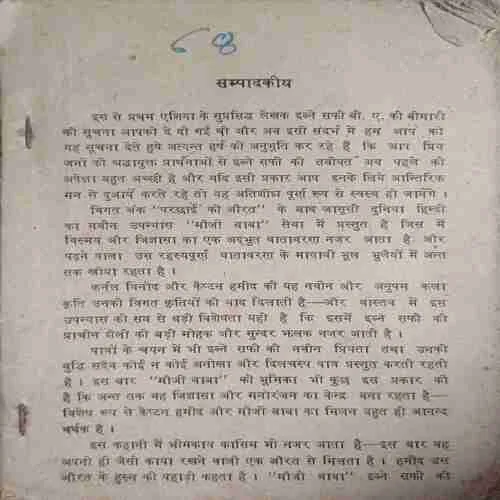 68
सम्पादकीय
इस से प्रथम एशिया के सुप्रसिद्ध लेखक इब्ने सफी बी. ए. की बीमारी
की सूचना आपको दे दी गई थी और अब इसी संदर्भ में हम आप को
यह सूचना देते हुये अत्यन्त हर्ष की अनुभूति कर रहे हैं कि आप प्रिय
जनों की श्रद्धायुक्त प्रार्थनाओं से इब्ने सफी की तबीयत अब पहले की
अपेक्षा बहुत अच्छी है और यदि इसी प्रकार आप इनके लिये आन्तरिक
मन से दुआयें करते रहे तो वह अतिशीघ्र पूर्ण रूप से स्वस्थ हो जायेंगे ।
विगत अंक "परछाईं की औरत" के बाद जासूसी दुनिया हिन्दी
का नवीन उपन्यास "मौजी बाबा" सेवा में प्रस्तुत है जिस में
विस्मय और जिज्ञासा का एक अद्भुत वातावरण नजर आता है और
पढ़ने वाला उस रहस्यपूर्ण वातावरण के मायावी भूल भुलैयों में अन्त
तक खोया रहता है ।
कर्नल विनोद और कैप्टन हमीद की यह नवीन और अनुपम कला
कृति उनकी विगत कृतियों की याद दिलाती है—और वास्तव में इस
उपन्यास की सब से बड़ी विशेषता यही है कि इसमें इब्ने सफी की
प्राचीन शैली की बड़ी मोहक और सुन्दर झलक नजर आती है ।
पात्रों के चयन में भी इब्ने सफी की नवीन प्रियता तथा उनकी
बुद्धि सदैव कोई न कोई अनोखा और दिलचस्प पात्र प्रस्तुत करती रहती
है । इस बार "मौजी बाबा" की भूमिका भी कुछ इस प्रकार की
है कि अन्त तक वह जिज्ञासा और मनोरंजन का केन्द्र बना रहता है—
विशेष रूप से कैप्टन हमीद और मौजी बाबा का मिलन बहुत ही आनन्द
वर्धक है ।
इस कहानी में भीमकाय कासिम भी नजर आता है—इस बार वह
अपनी ही जैसी काया रखने वाली एक औरत से मिलता है । हमीद उस
औरत के हुस्न की पहाड़ी कहता है । "मौजी बाबा" इब्ने सफी की